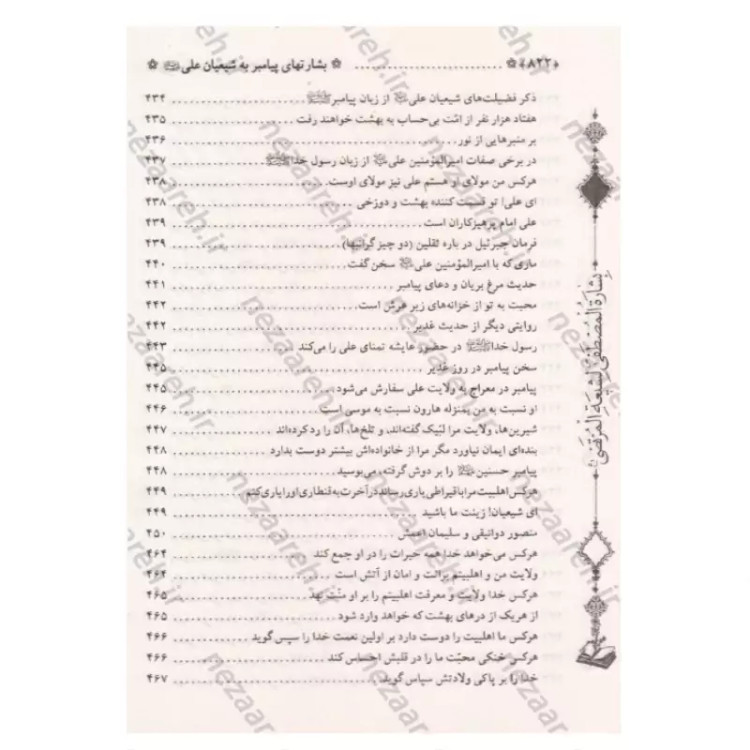 ﴿۸۲۲﴾ ✿ .......................... ✿ بشارتهای پیامبر به شیعیان علی ✿
ذکر فضیلت‌های شیعیان علی از زبان پیامبر ۴۳۴
هفتاد هزار نفر از امّت بی‌حساب به بهشت خواهند رفت ۴۳۵
بر منبرهایی از نور ۴۳۶
در برخی صفات امیرالمؤمنین علی از زبان رسول خدا ۴۳۷
هرکس من مولای او هستم علی نیز مولای اوست ۴۳۸
ای علی! تو قسمت کننده بهشت و دوزخی ۴۳۸
علی امام پرهیزکاران است ۴۳۹
فرمان جبرئیل در باره ثقلین (دو چیز گرانبها) ۴۳۹
ماری که با امیرالمؤمنین علی سخن گفت ۴۴۰
حدیث مرغ بریان و دعای پیامبر ۴۴۱
محبت به تو از خزانه‌های زیر عرش است ۴۴۲
روایتی دیگر از حدیث غدیر ۴۴۲
رسول خدا در حضور عایشه تمنای علی را می‌کند ۴۴۳
سخن پیامبر در روز غدیر ۴۴۵
پیامبر در معراج به ولایت علی سفارش می‌شود ۴۴۵
او نسبت به من بمنزله هارون نسبت به موسی است ۴۴۶
شیرین‌ها، ولایت مرا لبّیک گفته‌اند، و تلخ‌ها، آن را رد کرده‌اند ۴۴۷
بنده‌ای ایمان نیاورد مگر مرا از خانواده‌اش بیشتر دوست بدارد ۴۴۸
پیامبر حسنین را بر دوش گرفته، می‌بوسید ۴۴۸
هرکس اهلبیت مرا با قیراطی یاری رساند در آخرت به قنطاری او را یاری کنم ۴۴۹
ای شیعیان! زینت ما باشید ۴۴۹
منصور دوانیقی و سلیمان اعمش ۴۵۰
هرکس می‌خواهد خدا همه خیرات را در او جمع کند ۴۶۴
ولایت من و اهلبیتم برائت و امان از آتش است ۴۶۴
هرکس خدا ولایت و معرفت اهلبیتم را بر او منّت نهد ۴۶۵
از هریک از درهای بهشت که خواهد وارد شود ۴۶۵
هرکس ما اهلبیت را دوست دارد بر اولین نعمت خدا را سپس گوید ۴۶۶
هرکس خنکی محبّت ما را در قلبش احساس کند ۴۶۶
خدا را بر پاکی ولادتش سپاس گوید ۴۶۷
بِشارَةُ المُصْطَفىٰ لِشیعَةِ المُرْتَضىٰ
nezaareh.ir